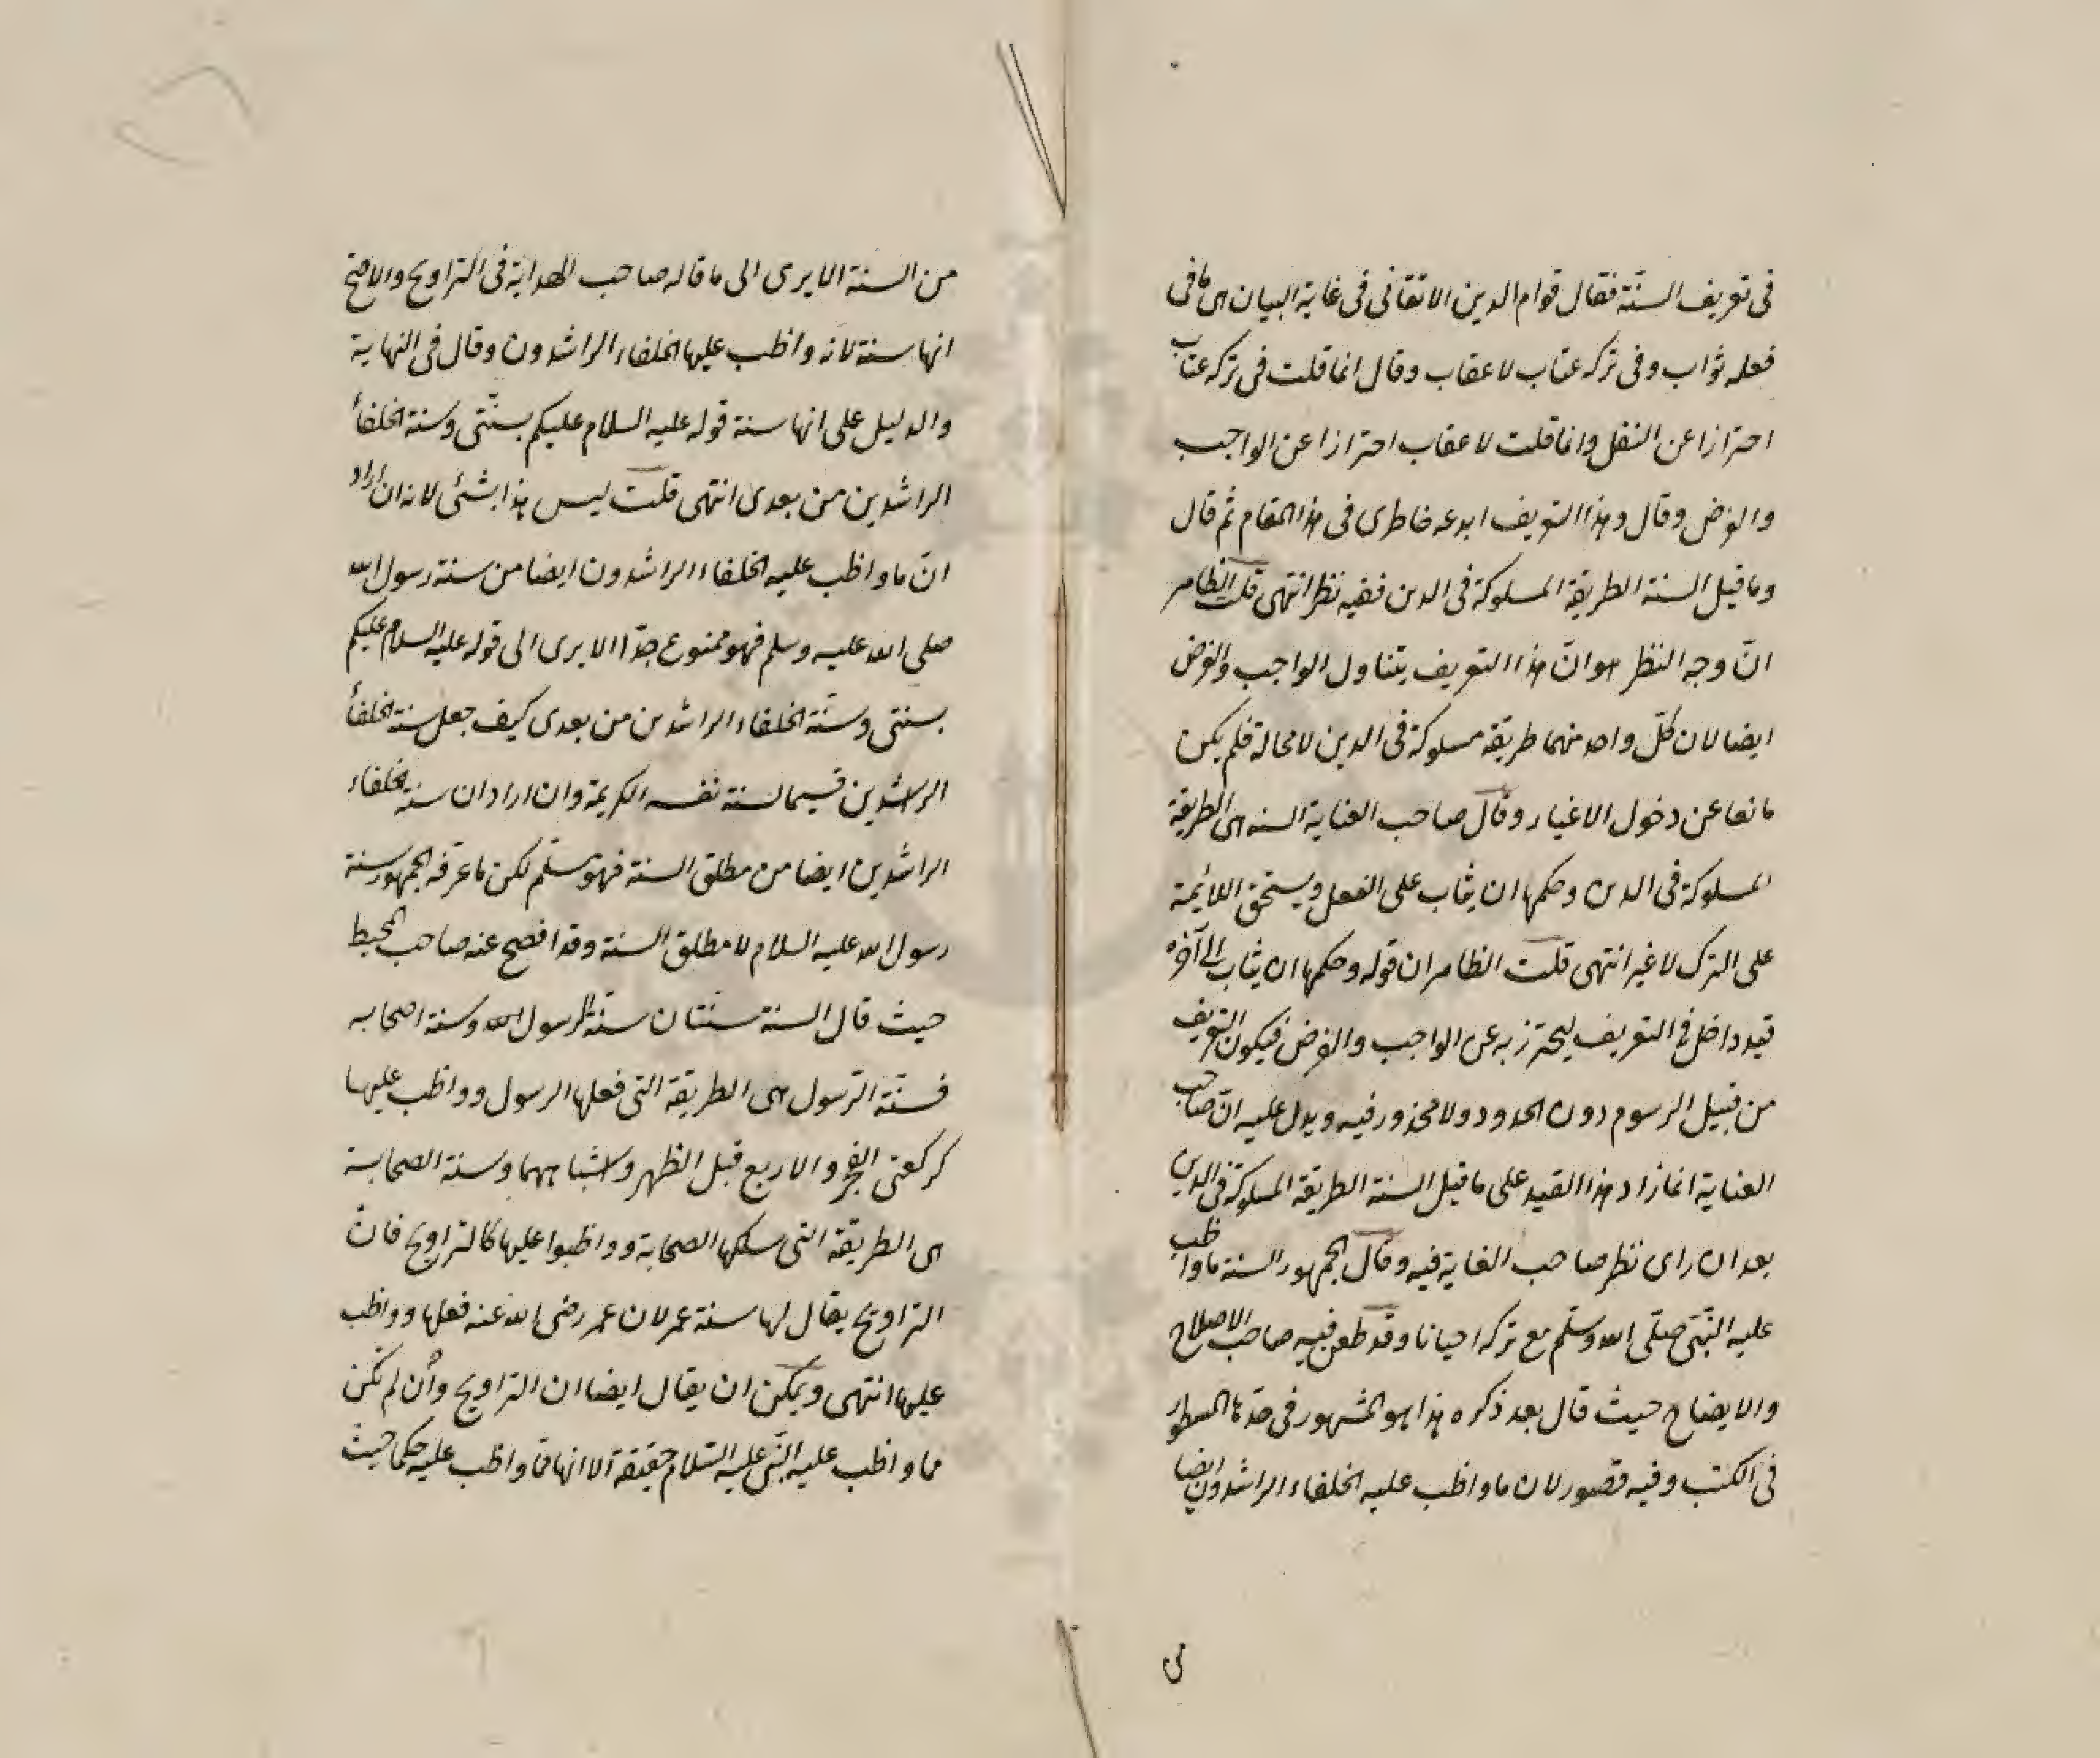 فى تعريف السنّة فقال قوام الدين الاتقانى فى غاية البيان هى ما فى
فعله ثواب وفى تركه عتاب لا عقاب وقال انما قلت فى تركه عتاب
احترازا عن النفل وانما قلت لا عقاب احترازا عن الواجب
والفرض وقال وهذا التعريف ابدعه خاطرى فى هذا المقام ثم قال
وما قيل السنة الطريقة المسلوكة فى الدين ففيه نظر انتهى قلت الظاهر
انّ وجه النظر هو انّ هذا التعريف يتناول الواجب والفرض
ايضا لان كلّ واحد منهما طريقة مسلوكة فى الدين لا محالة فلم يكن
مانعا عن دخول الاغيار وقال صاحب العناية السنة هى الطريقة
المسلوكة فى الدين وحكمها ان يثاب على الفعل ويستحق اللائمة
على الترك لا غير انتهى قلت الظاهر ان قوله وحكمها ان يثاب الى آخره
قيد داخل فى التعريف ليحترز به عن الواجب والفرض فيكون التعريف
من قبيل الرسوم دون الحدود ولا محذور فيه ويدل عليه انّ صاحب
العناية انما زاد هذا القيد على ما قيل السنة الطريقة المسلوكة فى الدين
بعد ان راى نظر صاحب الغاية فيه وقال الجمهور السنة ما واظب
عليه النّبى صلّى الله وسلّم مع تركه احيانا وقد طعن فيه صاحب الاصلاح
والايضاح حيث قال بعد ذكره هذا هو المشهور فى حدّها المسطور
فى الكتب وفيه قصور لان ما واظب عليه الخلفاء الراشدون ايضا
من السنة الا يرى الى ما قاله صاحب الهداية فى التراويح والاصح
انها سنة لانه واظب عليها الخلفاء الراشدون وقال فى النهاية
والدليل على انها سنة قوله عليه السلام عليكم بسنّتى وسنة الخلفأ
الراشدين من بعدى انتهى قلت ليس هذا بشئ لانه ان اراد
انّ ما واظب عليه الخلفاء الراشدون ايضا من سنة رسول الله
صلى الله عليه وسلم فهو ممنوع جدّا الا يرى الى قوله عليه السلام عليكم
بسنتى وسنّة الخلفاء الراشدين من بعدى كيف جعل سنة الخلفأ
الراشدين قسيما لسنة نفسه الكريمة وان اراد ان سنة الخلفاء
الراشدين ايضا من مطلق السنة فهو مسلّم لكن ما عرّفه الجمهور سنة
رسول الله عليه السلام لا مطلق السنة وقد افصح عنه صاحب المحيط
حيث قال السنة سنتان سنّة الرسول الله وسنة اصحابه
فسنّة الرّسول هى الطريقة التى فعلها الرسول وواظب عليها
كركعتى الفجر والاربع قبل الظهر واشباههما وسنة الصحابة
هى الطريقة التى سلكها الصحابة وواظبوا عليها كالتراويح فانّ
التراويح يقال لها سنة عمر لان عمر رضى الله عنه فعلها وواظب
عليها انتهى ويمكن ان يقال ايضا ان التراويح وأن لم تكن
مما واظب عليه النّبى عليه السّلام حقيقة الا انها مما واظب عليه حكما حيث